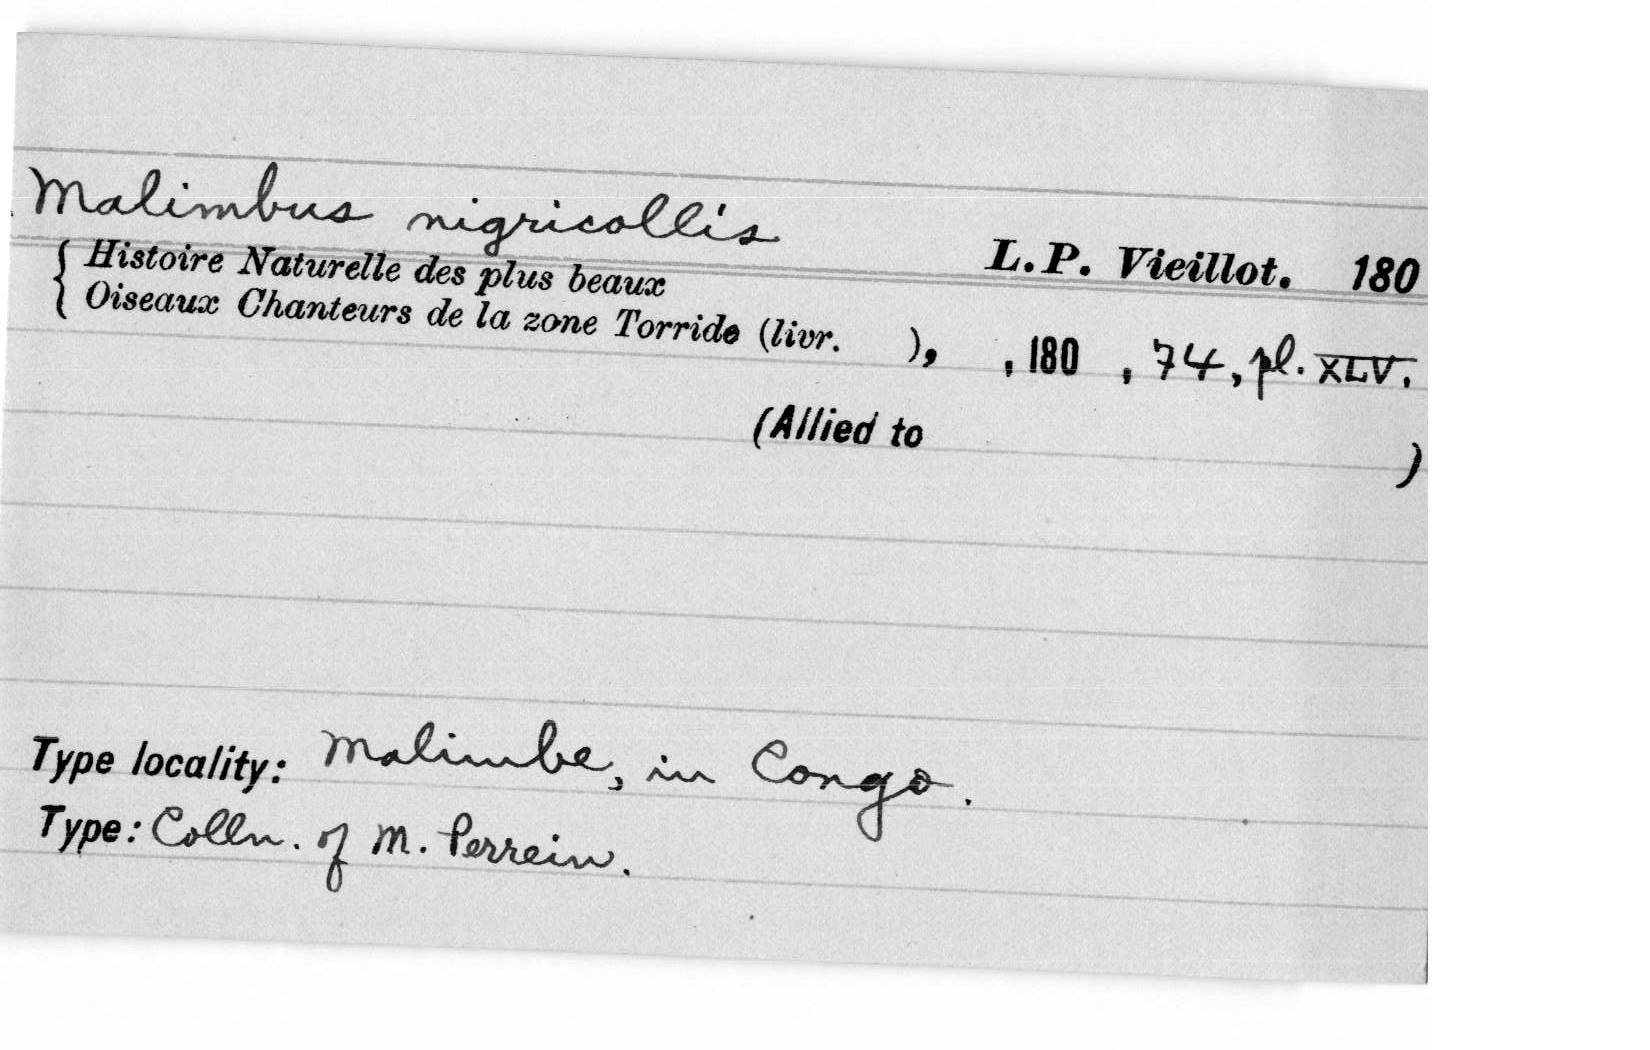 Malimbus nigricollis
L.P. Vieillot. 180
{ Histoire Naturelle des plus beaux
Oiseaux Chanteurs de la zone Torride (livr. ), , 180 , 74, pl. XLV.
(Allied to )
Type locality: Malimbe, in Congo.
Type: Colln. of M. Perrein.